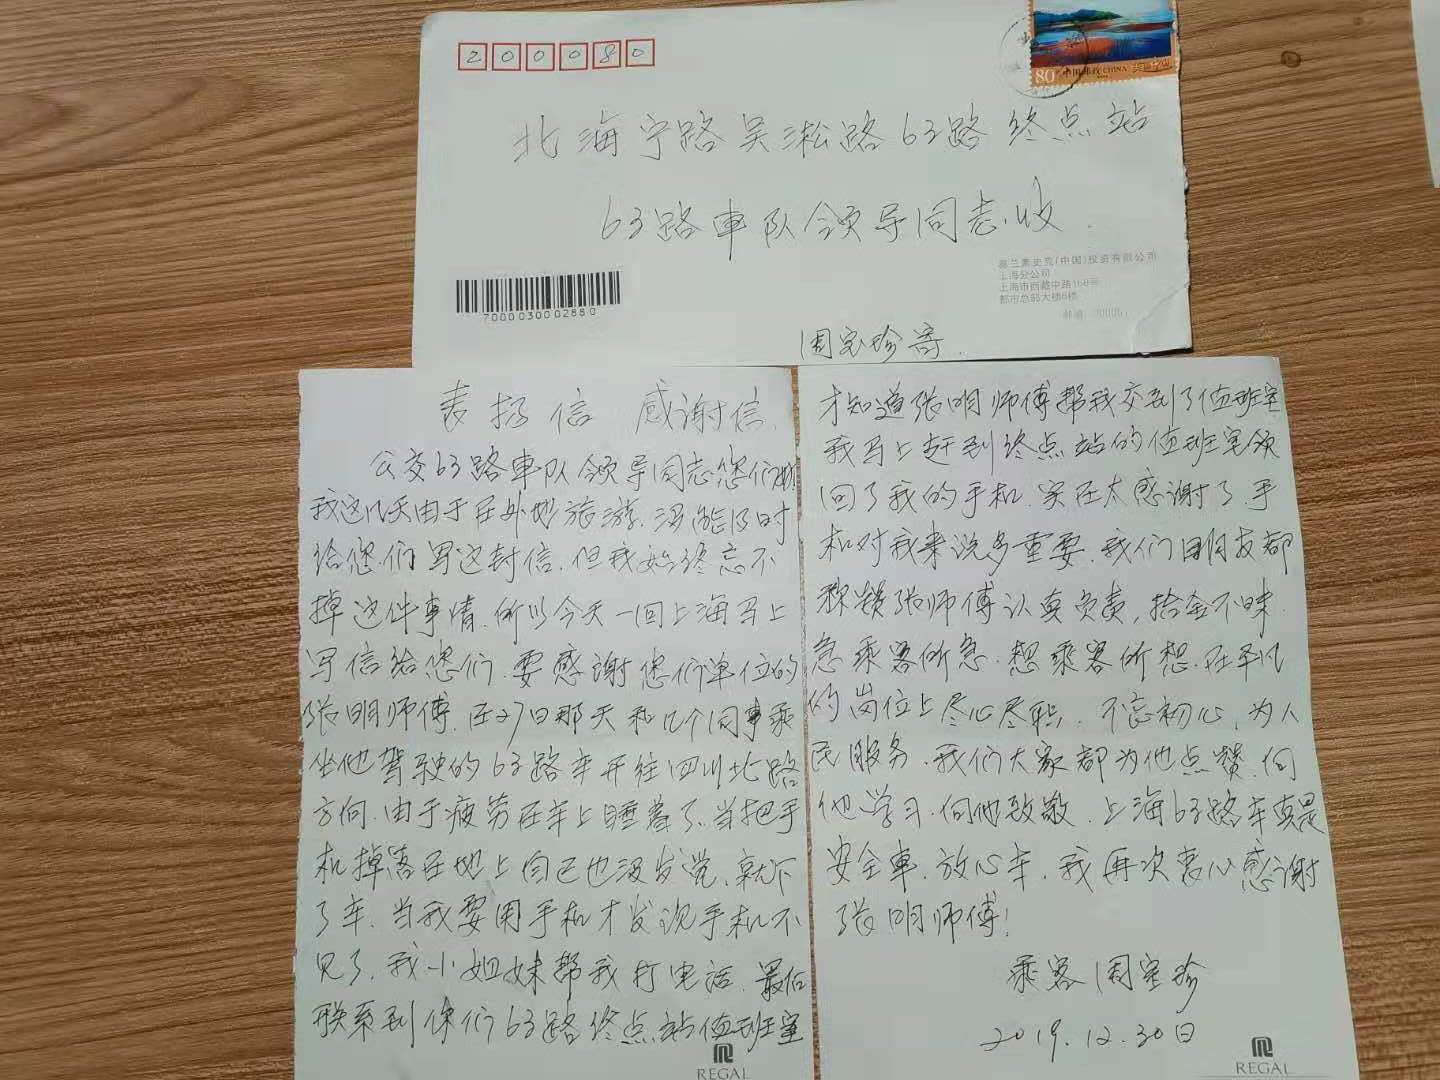 200080
80 中国邮政 CHINA
北海宁路吴淞路63路终点站
63路車队领导同志收
葛兰素史克(中国)投资有限公司
上海分公司
上海市西藏中路168号
都市总部大楼6楼
7000030002880
周宝珍寄
表扬信 感谢信
公交63路車队领导同志您们好
我这几天由于在外地旅游.没能及时
给您们写这封信.但我始终忘不
掉这件事情.所以今天一回上海马上
写信给您们.要感谢您们单位的
张明师傅.在27日那天和几个同事乘
坐他驾驶的63路车开往四川北路
方向.由于疲劳在车上睡着了.当把手
机掉落在地上自己也没发觉.就下
了车.当我要用手机才发现手机不
见了.我小姐妹帮我打电话.最后
联系到你们63路终点站值班室
REGAL
才知道张明师傅帮我交到了值班室
我马上赶到终点站的值班室领
回了我的手机.实在太感谢了.手
机对我来说多重要.我们朋友都
称赞张师傅认真负责,拾金不昧.
急乘客所急.想乘客所想.在平凡
的岗位上尽心尽职.不忘初心,为人
民服务.我们大家都为他点赞.向
他学习.向他致敬.上海63路车真是
安全車.放心车.我再次衷心感谢
张明师傅!
乘客周宝珍
2019.12.30日
REGAL